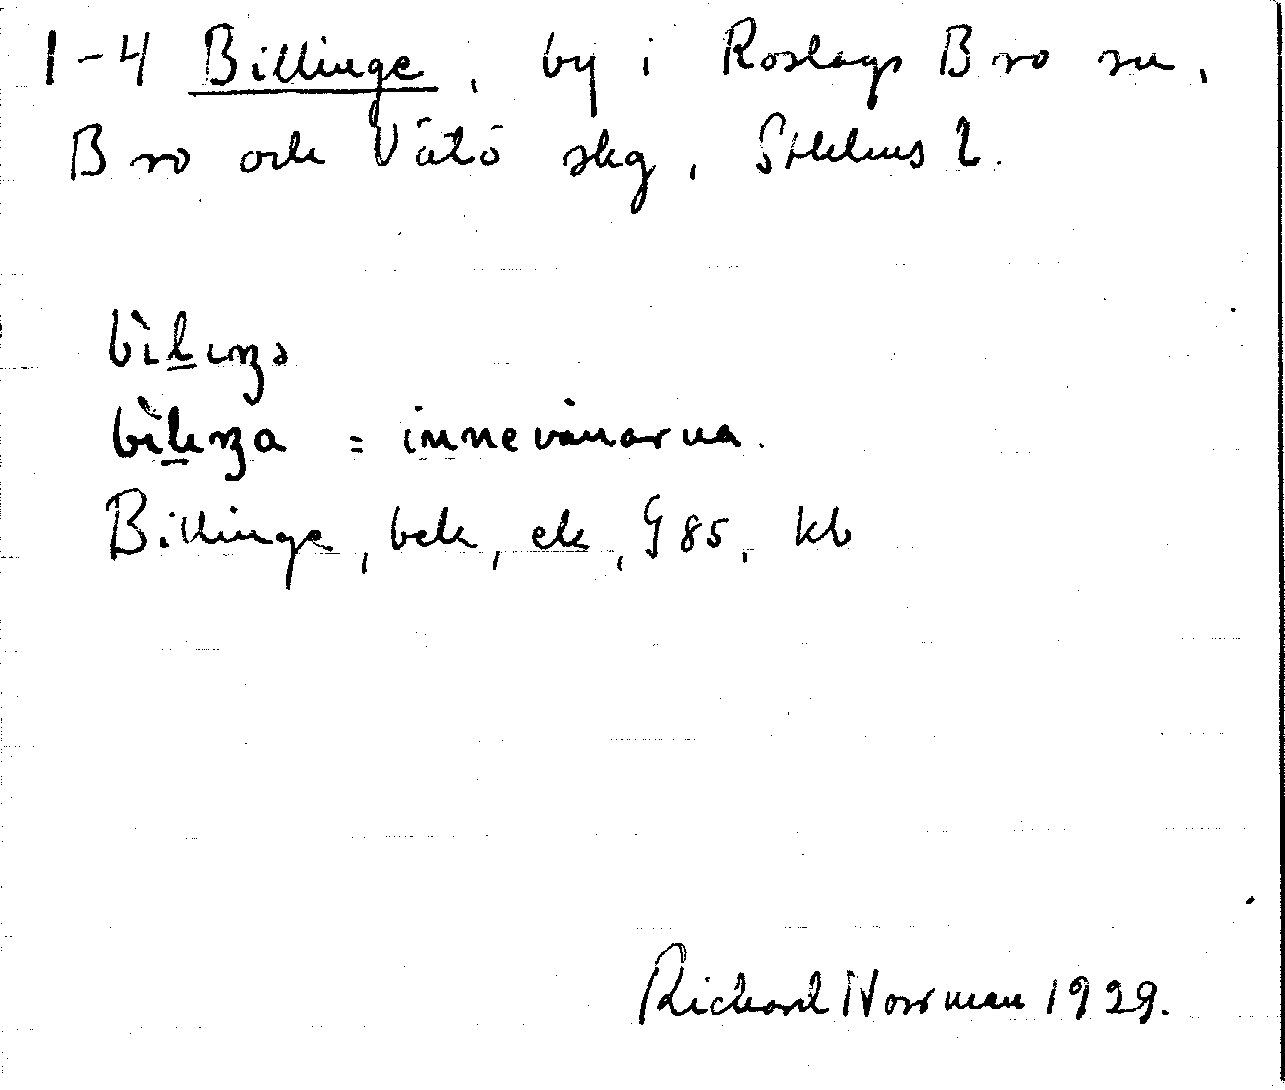 1-4 Billinge, by i Roslags Bro sn,
Bro och Vätö skg, Sthlms l.
bìlıŋa
bìlıŋa = innevånarna.
Billinge, bek, ek, G85, kb
Richard Norrman 1929.